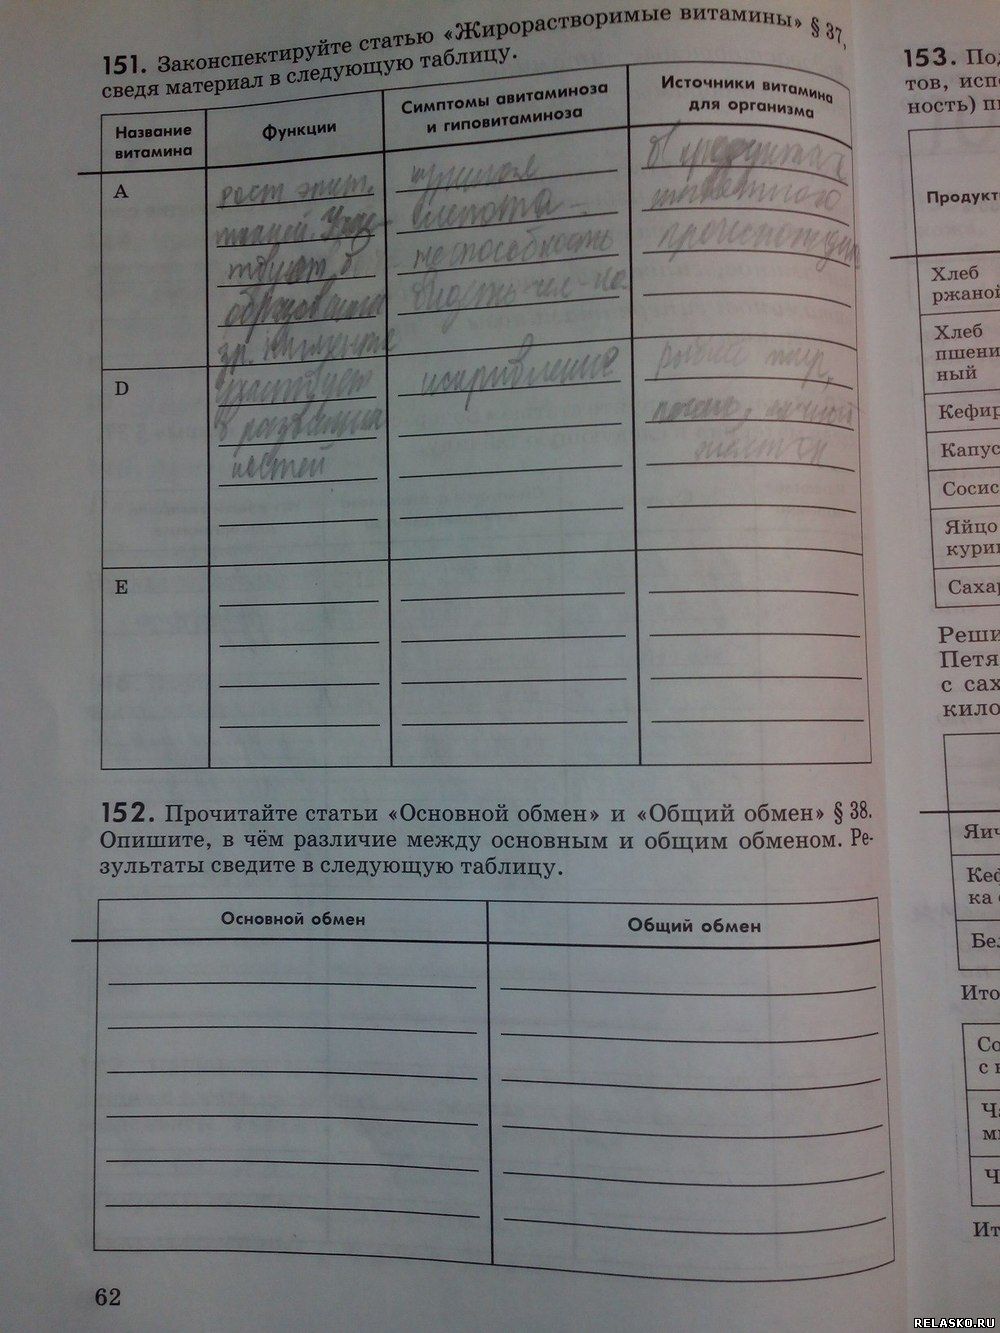 151. Законспектируйте статью «Жирорастворимые витамины» § 37,
сведя материал в следующую таблицу.
Название
витамина
Функции
Симптомы авитаминоза
и гиповитаминоза
Источники витамина
для организма
A
рост эпит.
тканей. Участ-
твует в
образовании
зр.
слепота -
неспособность
видеть
В продуктах
животного
происхожден
D
участвует
в развитии
костей
искривление
рыбий жир,
печень, яичный
желток
E
152. Прочитайте статьи «Основной обмен» и «Общий обмен» § 38.
Опишите, в чём различие между основным и общим обменом. Ре-
зультаты сведите в следующую таблицу.
Основной обмен
Общий обмен
62
153. Под
тов, испо
ность) пи
Продукт
Хлеб
ржаной
Хлеб
пшенич
ный
Кефир
Капус
Сосис
Яйцо
курин
Сахар
Реши
Петя
с сах
кило
Яич
Кеф
ка с
Бел
Ито
Со
с к
Ча
м
Ч
Ит
RELASKO.RU